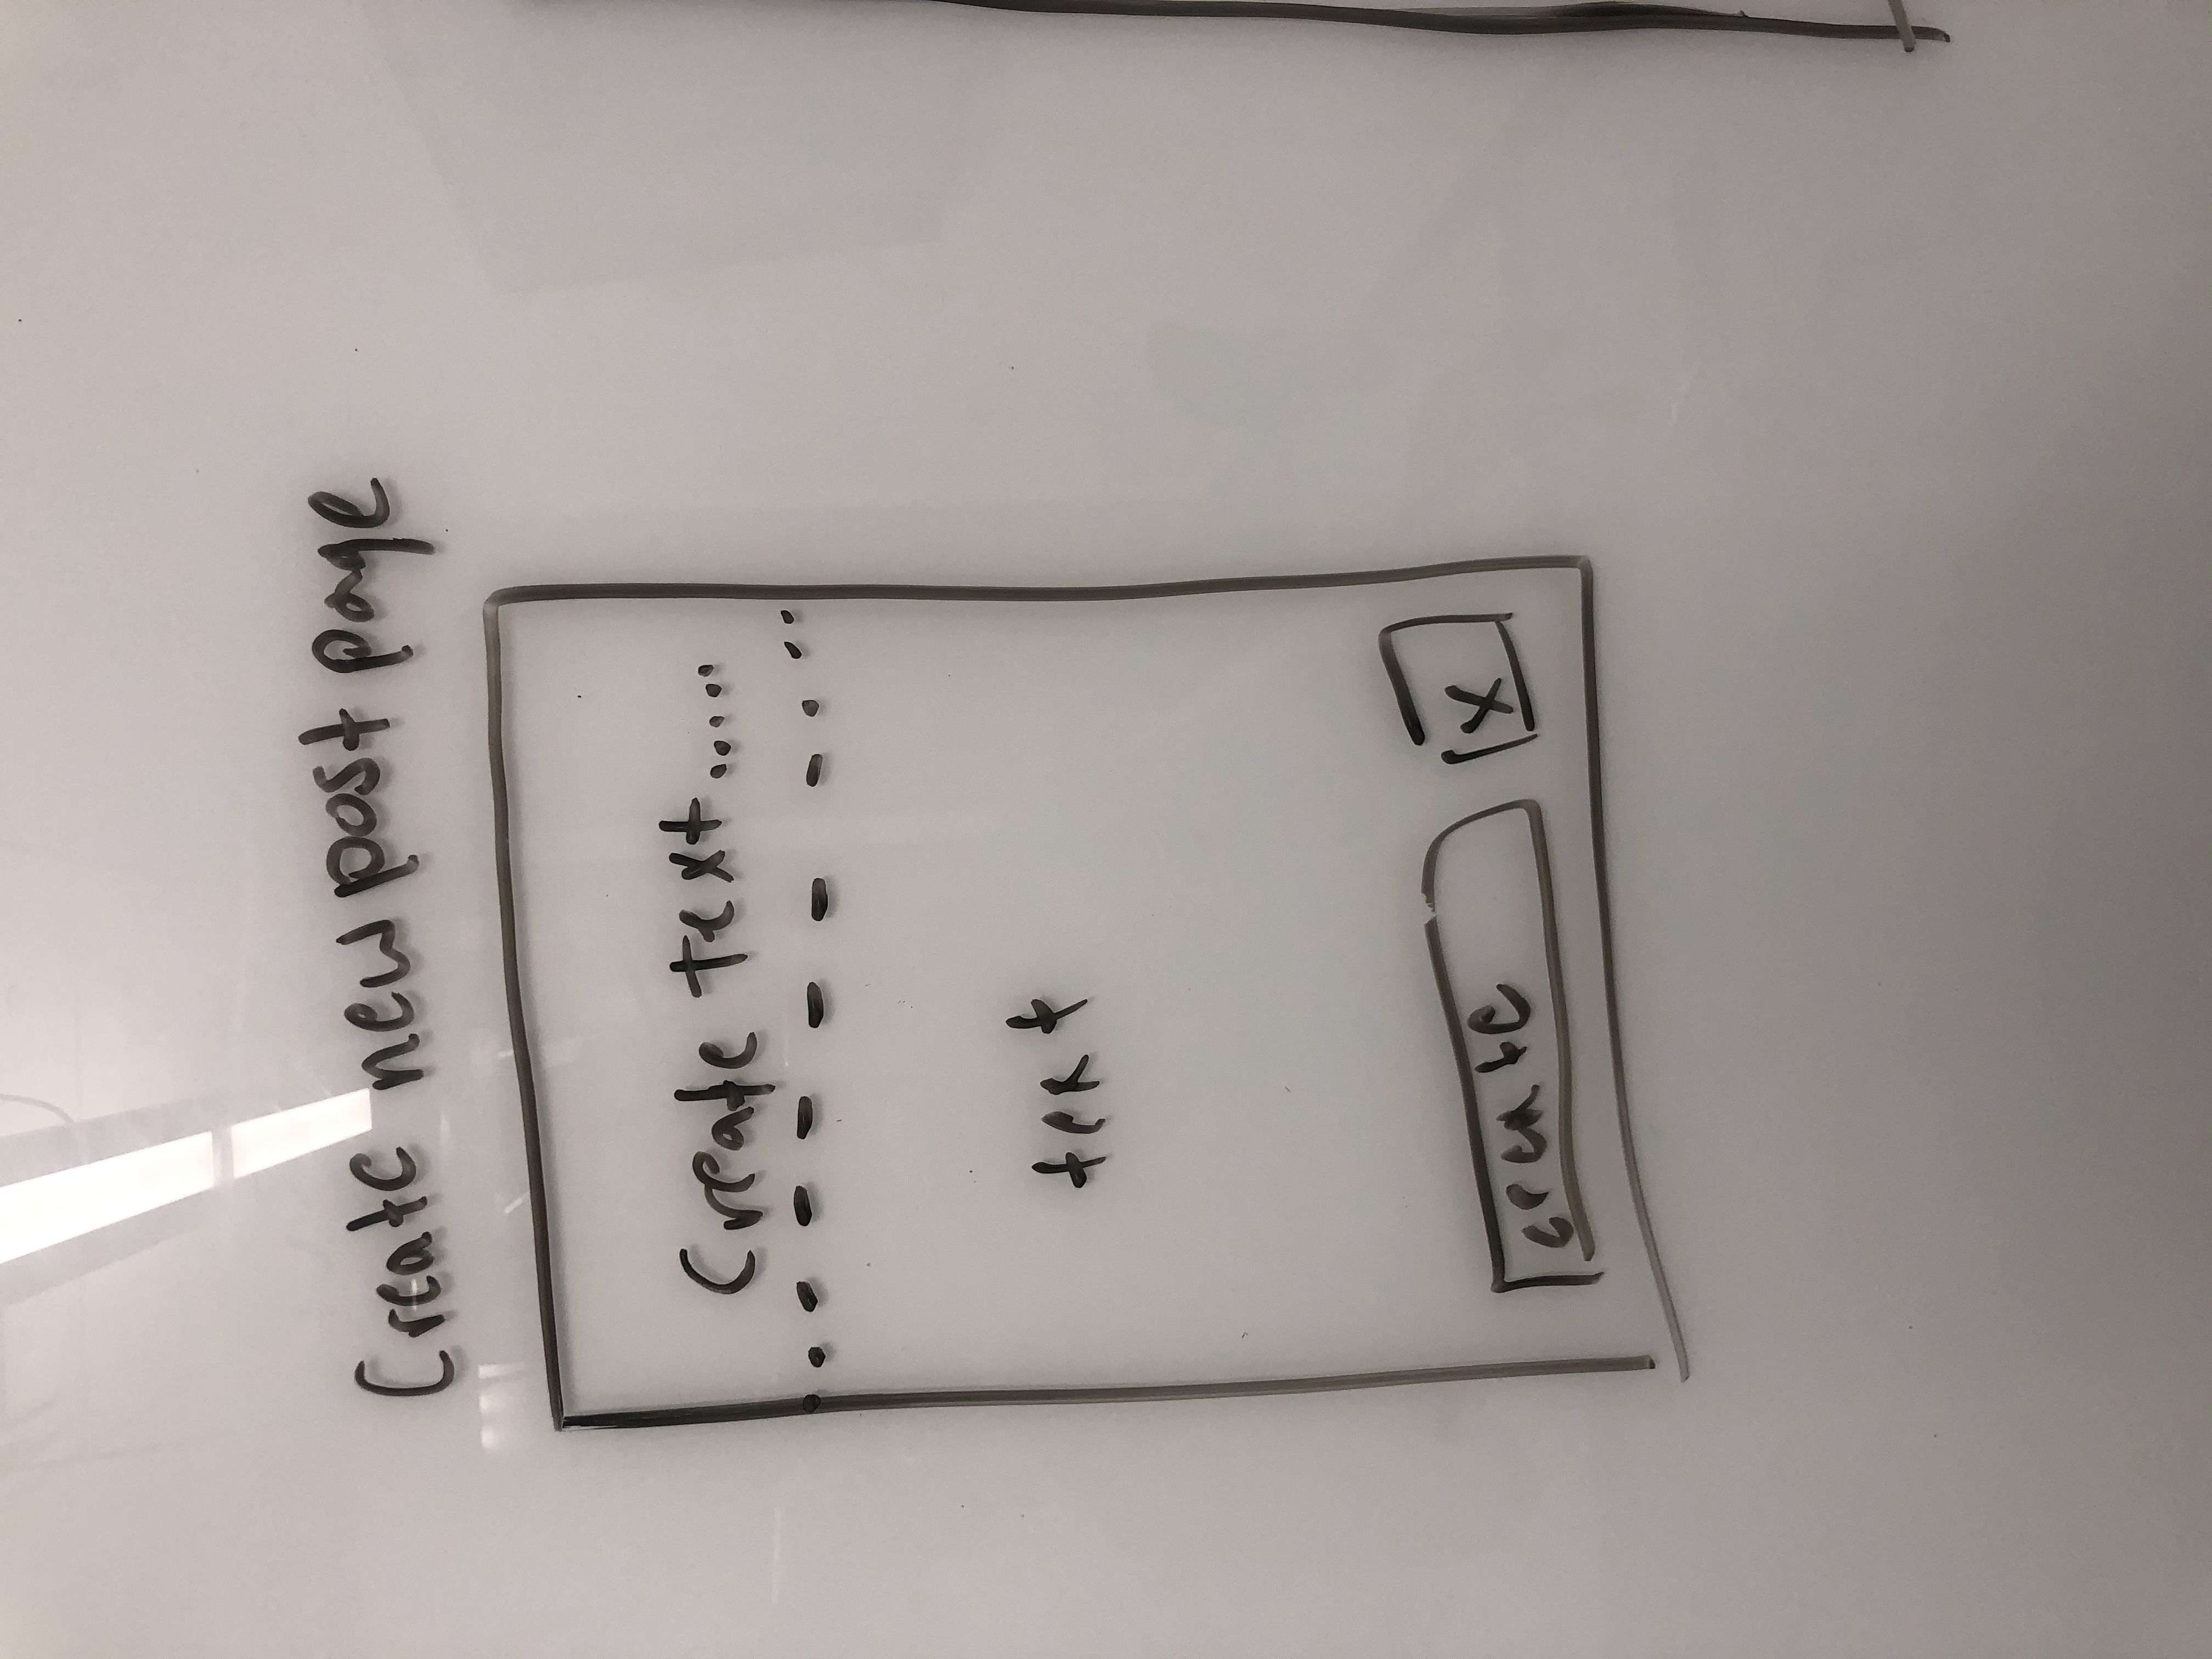 Create new post page
Create text.....
text
create
x